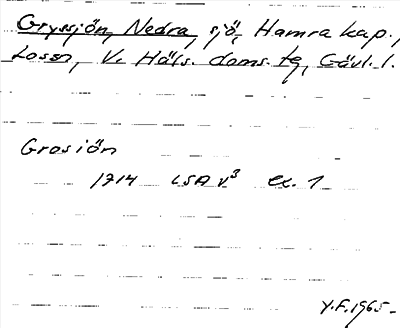 Gryssjön, Nedra, sjö, Hamra kap.,
Loson, V. Häls. doms. tg, Gävl. l.
Grosiön
1714 LSA V³ ex. 1
Y.F. 1965